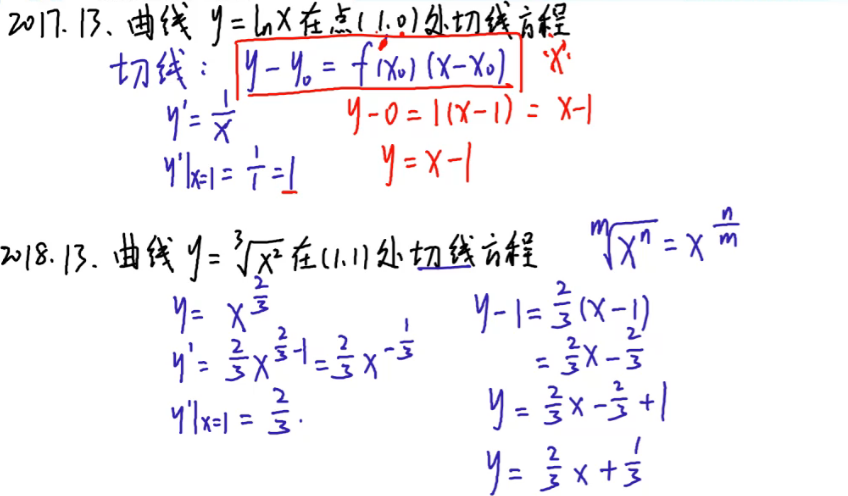 2017.13. 曲线 y=lnx 在点(1.0)处切线方程
切线: y-y₀=f'(x₀)(x-x₀) "x"
y'=1/x
y'|x=1 = 1/1 = 1
y-0=1(x-1)=x-1
y=x-1
2018.13. 曲线 y=³√x² 在(1.1)处切线方程 ᵐ√xⁿ = x^(n/m)
y= x^(2/3)
y'= 2/3 x^(2/3-1) = 2/3 x^(-1/3)
y'|x=1 = 2/3.
y-1=2/3(x-1)
= 2/3x-2/3
y= 2/3x-2/3+1
y= 2/3x+1/3